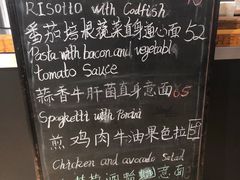 Risotto with Codfish
番茄培根蔬菜直身通心面 52
Pasta with bacon and vegetabl
tomato Sauce
蒜香牛肝菌直身意面 65
Spaghetti with Porcini
煎鸡肉牛油果色拉 59
Chicken and avocado Salad